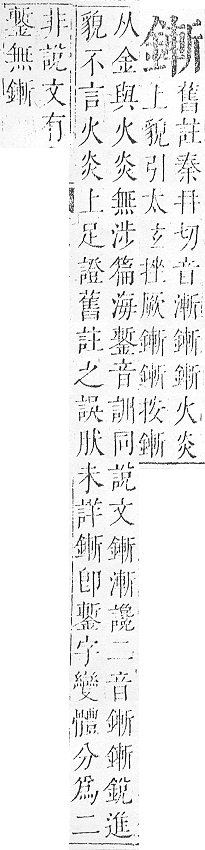 鏩
舊註秦冄切音漸鏩鏩火炎
上貌引太玄挫厥鏩鏩按鏩
从金與火炎無涉篇海鏨音訓同說文鏩漸讒二音鏩鏩銳進
貌不言火炎上足證舊註之誤肰未詳鏩卽鏨字變體分爲二
非說文有
鏨無鏩